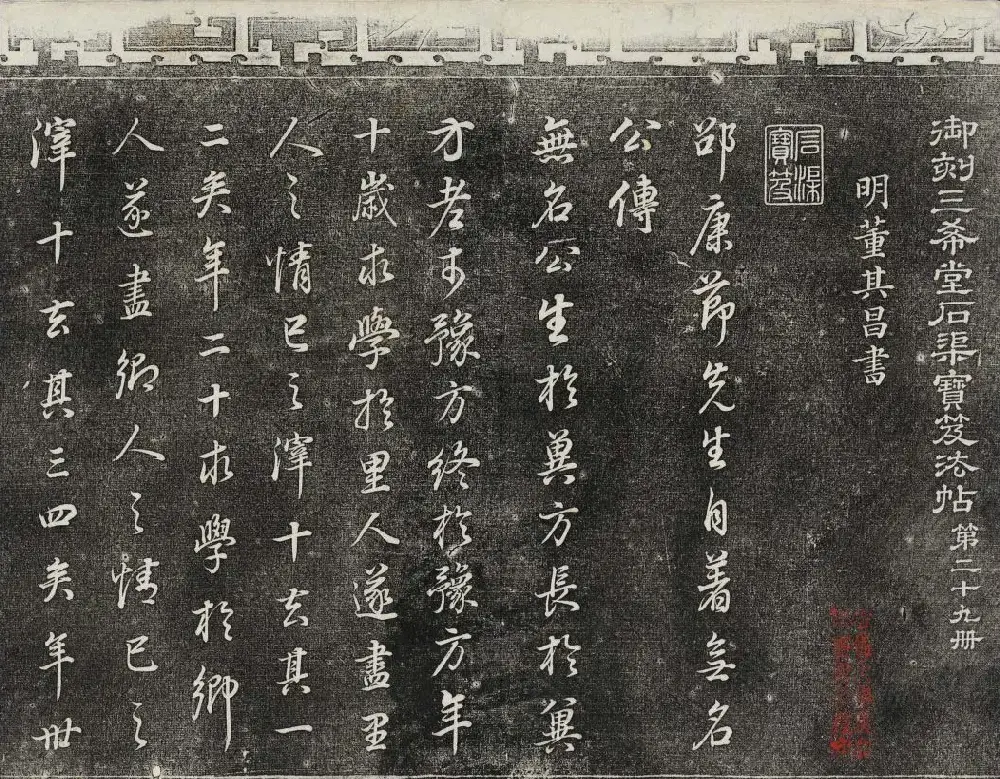 御刻三希堂石渠寶笈法帖 第二十九冊
明董其昌書
石渠寶笈
邵康節先生自着無名
公傳
無名公生於冀方長於冀
方老於豫方終於豫方年
十歲求學於里人遂盡里
人之情己之滓十去其一
二矣年二十求學於鄉
人遂盡鄉人之情己之
滓十去其三四矣年卅